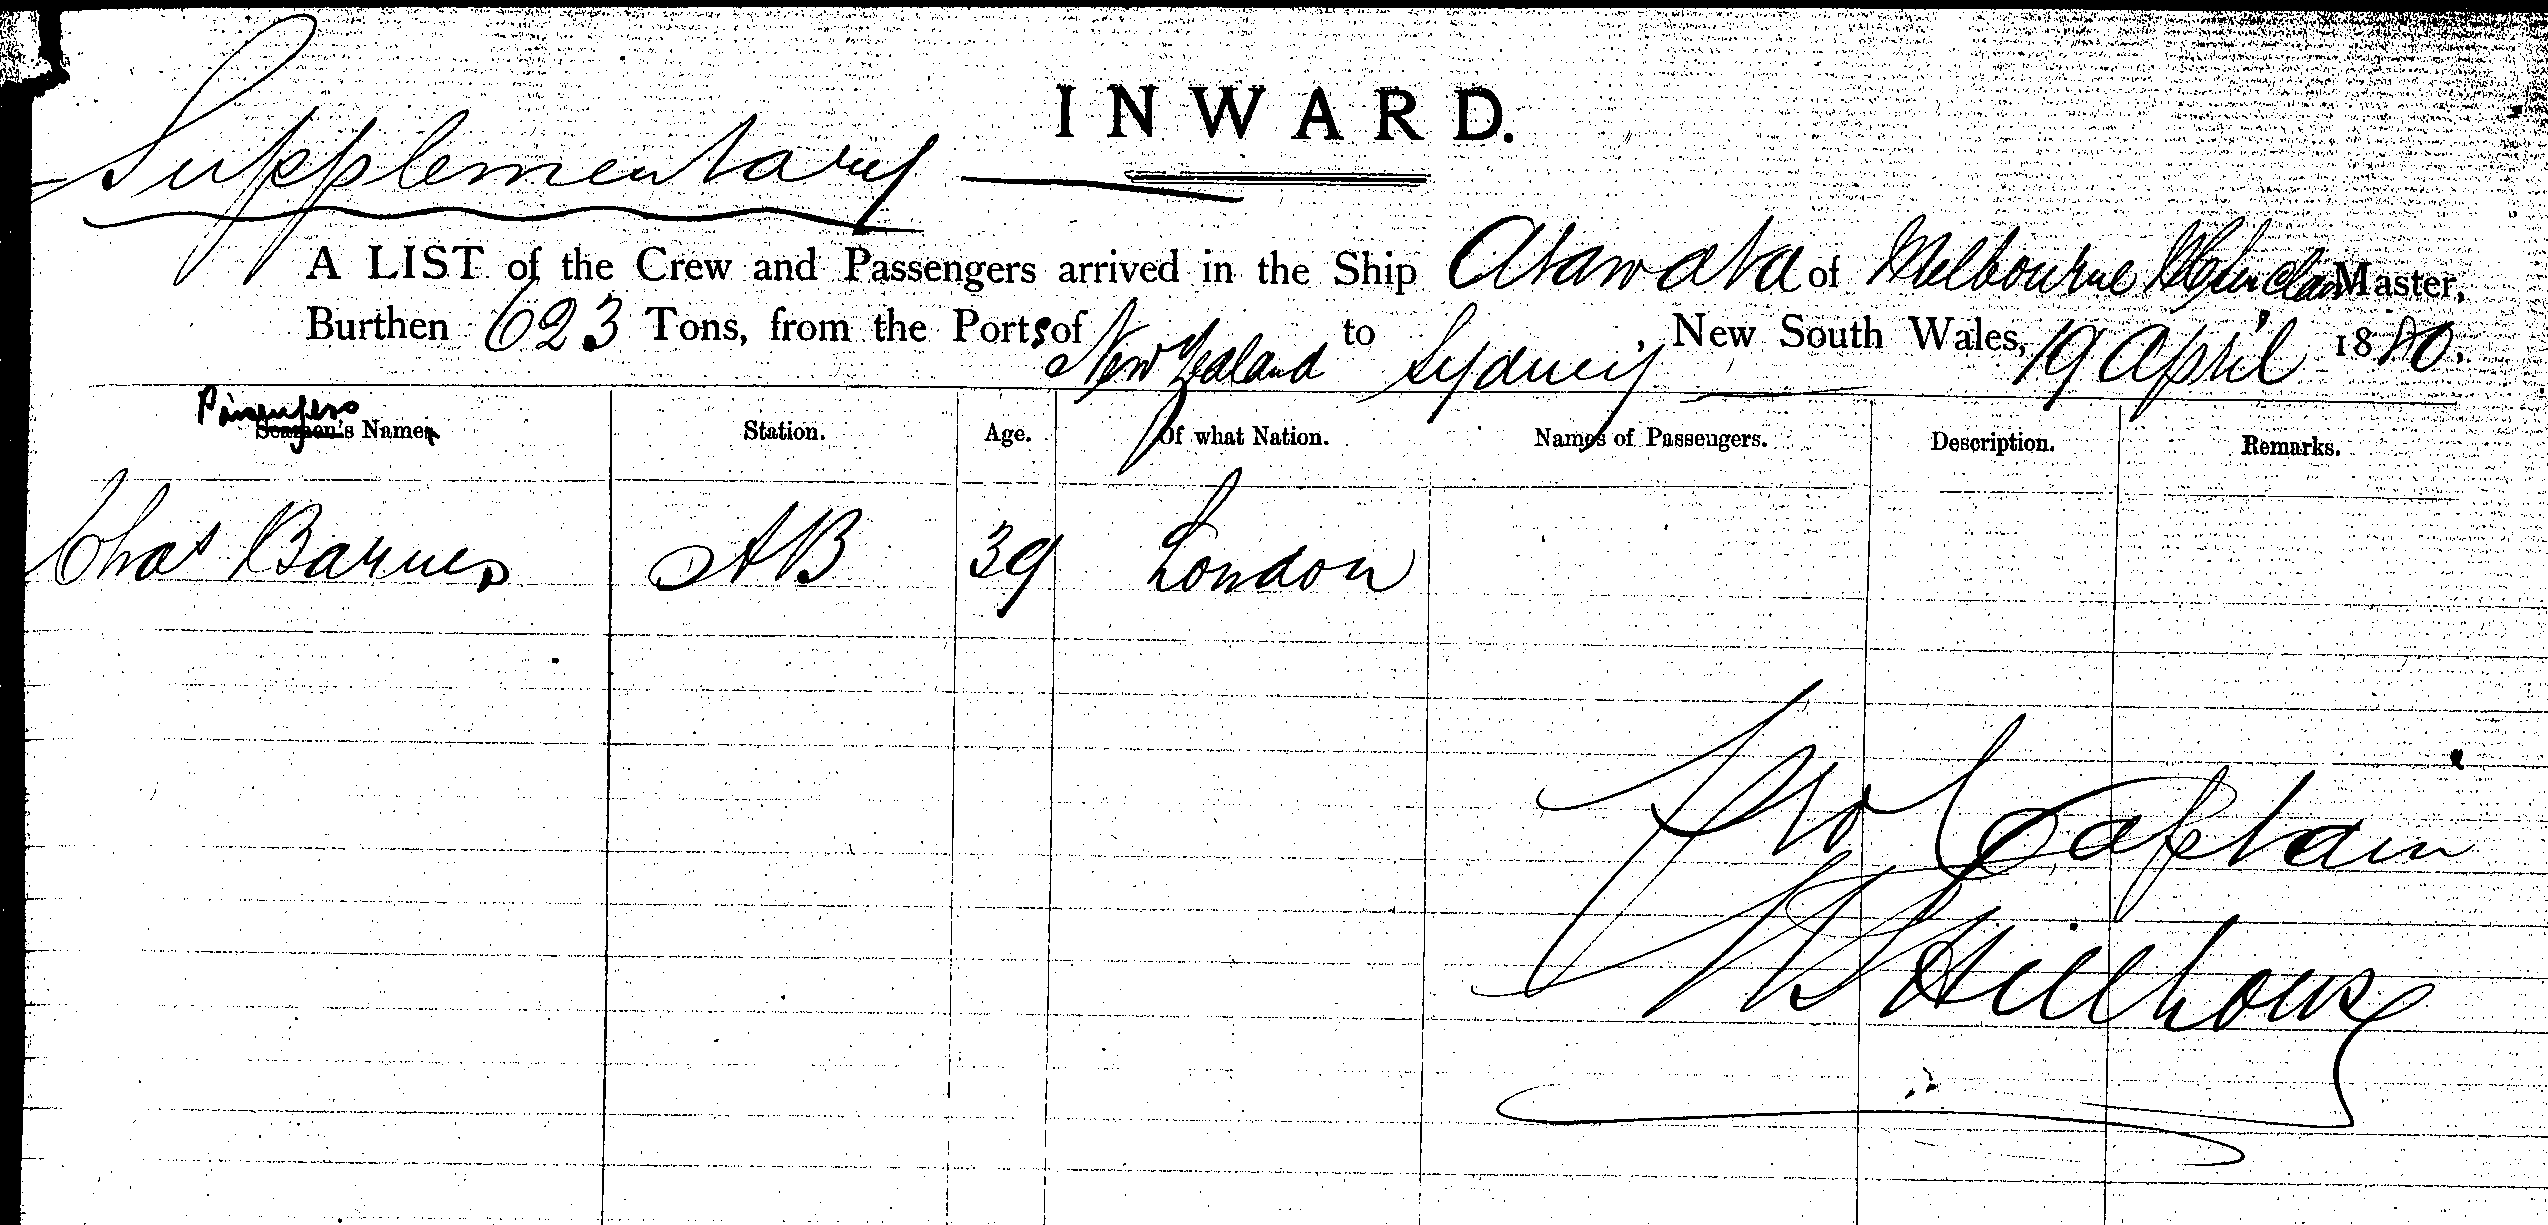 INWARD.
Supplementary
A LIST of the Crew and Passengers arrived in the Ship Arawata of Melbourne Master,
Burthen 623 Tons, from the Ports of New Zealand to Sydney, New South Wales, 19 April 1880.
Passengers
Seamen's Names Station. Age. Of what Nation. Names of Passengers. Description. Remarks.
Chas Barnes AB 39 London
Pro Captain
Hillhouse